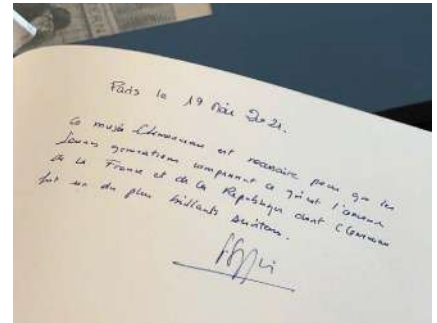 Paris le 19 Mai 2021.
Ce musée Clemenceau est nécessaire pour que les
jeunes générations comprennent ce qu'est l'amour
de la France et de la République dont Clemenceau
fut un des plus brillants serviteurs.